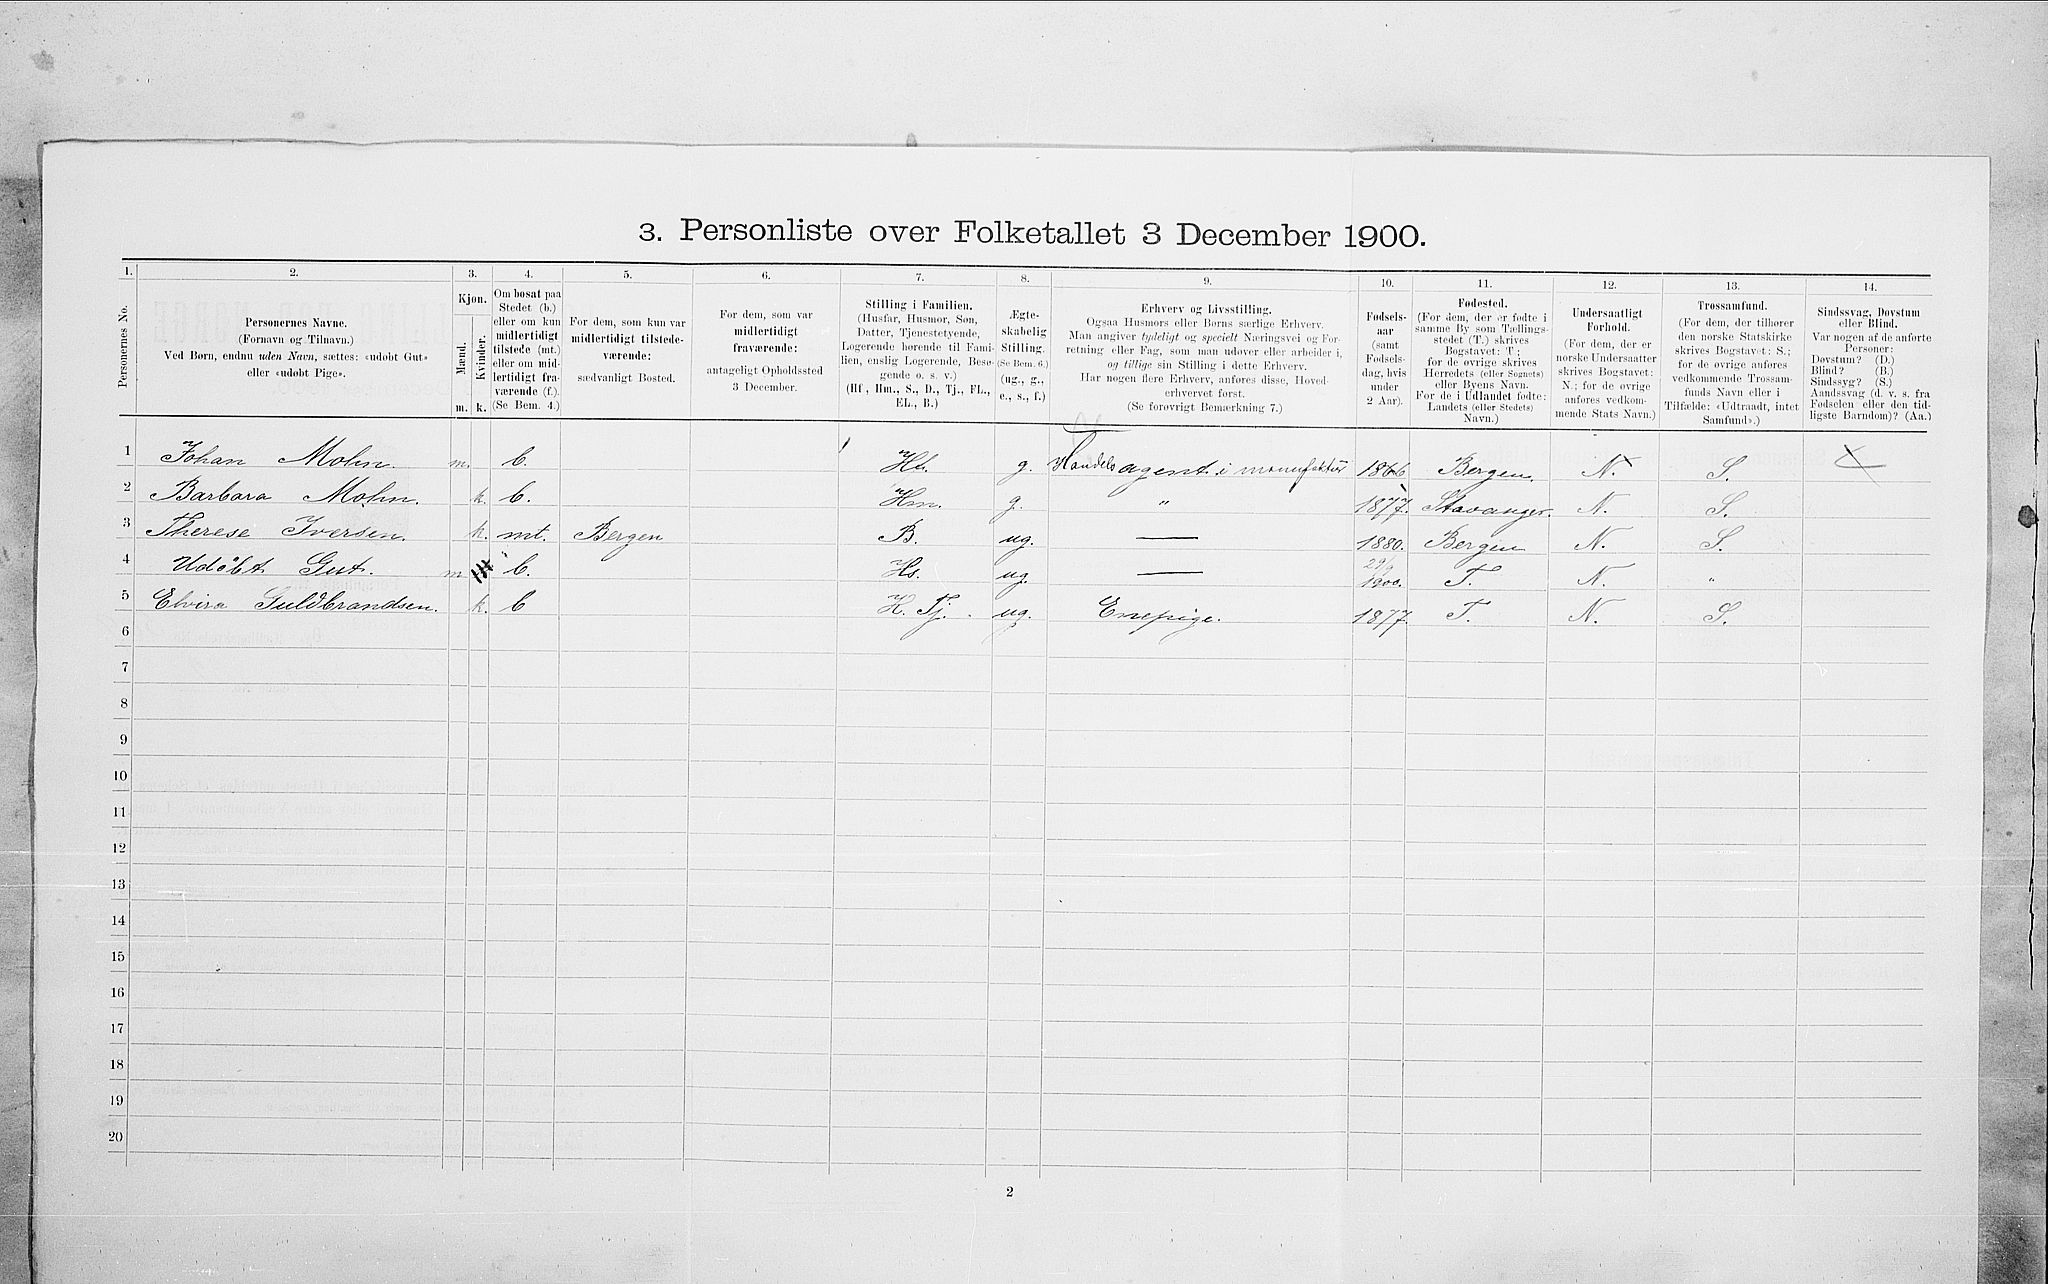 3. Personliste over Folketallet 3 December 1900.
1. 2. 3. 4. 5. 6. 7. 8. 9. 10. 11. 12. 13. 14.
Personernes No.
Personernes Navne.
(Fornavn og Tilnavn.)
Ved Børn, endnu uden Navn, sættes: «udøbt Gut»
eller «udøbt Pige».
Kjøn.
Mænd.
Kvinder.
m. k.
Om bosat paa
Stedet (b.)
eller om kun
midlertidigt
tilstede (mt.)
eller om mid-
lertidigt fra-
værende (f.)
(Se Bem. 4.)
For dem, som kun var
midlertidigt tilstede-
værende:
sædvanligt Bosted.
For dem, som var
midlertidigt
fraværende:
antageligt Opholdssted
3 December.
Stilling i Familien.
(Husfar, Husmor, Søn,
Datter, Tjenestetyende,
Logerende hørende til Fami-
lien, enslig Logerende, Besø-
gende o. s. v.)
(Hf., Hm., S., D., Tj., FL.,
EL., B.)
Ægte-
skabelig
Stilling.
(Se Bem. 6.)
(ug., g.,
e., s., f.)
Erhverv og Livsstilling.
Ogsaa Husmors eller Børns særlige Erhverv.
Man angiver tydeligt og specielt Næringsvei og For-
retning eller Fag, som man udøver eller arbeider i,
og tillige sin Stilling i dette Erhverv.
Har nogen flere Erhverv, anføres disse, Hoved-
erhvervet først.
(Se forøvrigt Bemærkning 7.)
Fødsels-
aar
(samt
Fødsels-
dag, hvis
under
2 Aar).
Fødested.
(For dem, der er fødte i
samme By som Tællings-
stedet (T.) skrives
Bogstavet: T;
for de øvrige skrives
Herredets (eller Sognets)
eller Byens Navn.
For de i Udlandet fødte:
Landets (eller Stedets)
Navn.)
Undersaatligt
Forhold.
(For dem, der er
norske Undersaatter
skrives Bogstavet:
N.; for de øvrige
anføres vedkom-
mende Stats Navn.)
Trossamfund.
(For dem, der tilhører
den norske Statskirke
skrives Bogstavet: S.;
for de øvrige anføres
vedkommende Trossam-
funds Navn eller i
Tilfælde: «Udtraadt, intet
Samfund».)
Sindssvag, Døvstum
eller Blind.
Var nogen af de anførte
Personer:
Døvstum? (D.)
Blind? (B.)
Sindssyg? (S.)
Aandssvag (d. v. s. fra
Fødselen eller den tid-
ligste Barndom)? (Aa.)
1 Johan Mohn. m. b. Hf. g. Handelsagent i manufaktur 1866 Bergen. N. S.
2 Barbara Mohn. k. b. Hm. g. " 1877. Stavanger. N. S.
3 Therese Iversen. k. mt. Bergen B. ug. — 1880. Bergen N. S.
4 Udøbt Gut. m. b. Hs. ug. — 29/9 1900. T. N. "
5 Elvira Guldbrandsen. k. b H. Tj. ug. Enepige. 1877. T. N. S.
6
7
8
9
10
11
12
13
14
15
16
17
18
19
20
2